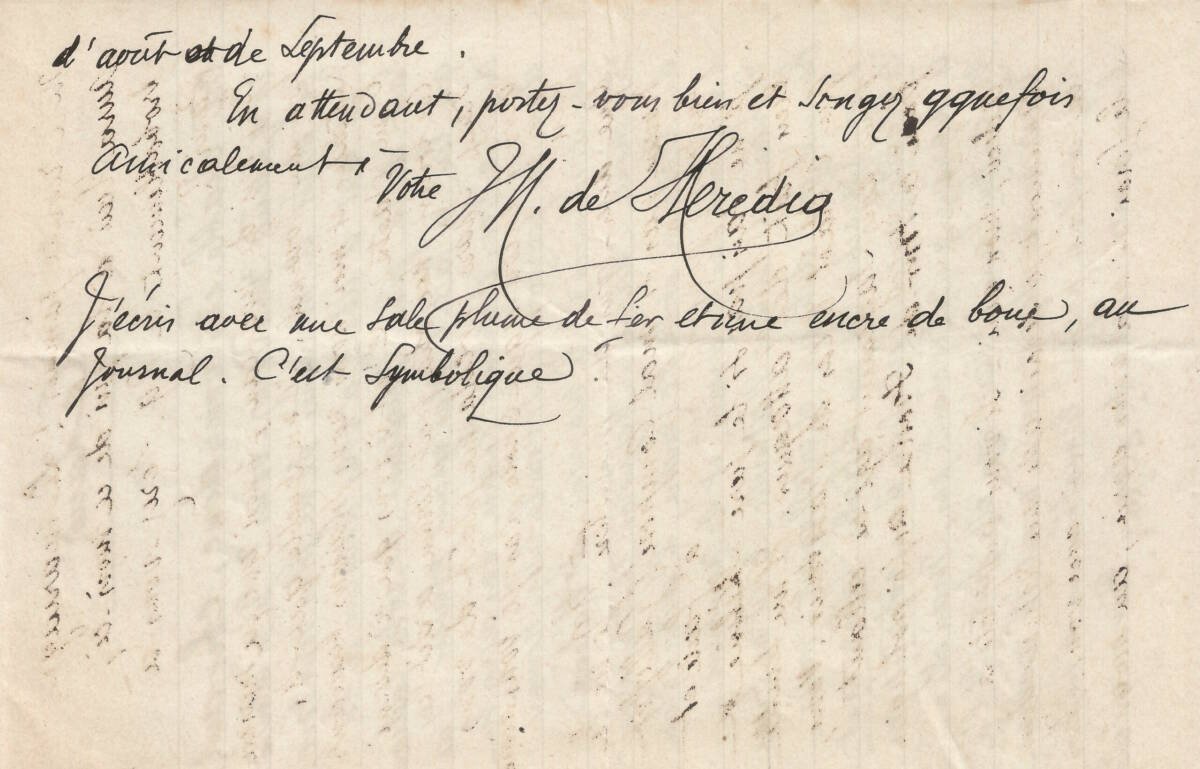 d'août et de Septembre.
En attendant, portez-vous bien et songez qquefois
amicalement à
Votre JM. de Heredia
J'écris avec une sale plume de fer et une encre de boue, au
journal. C'est symbolique.